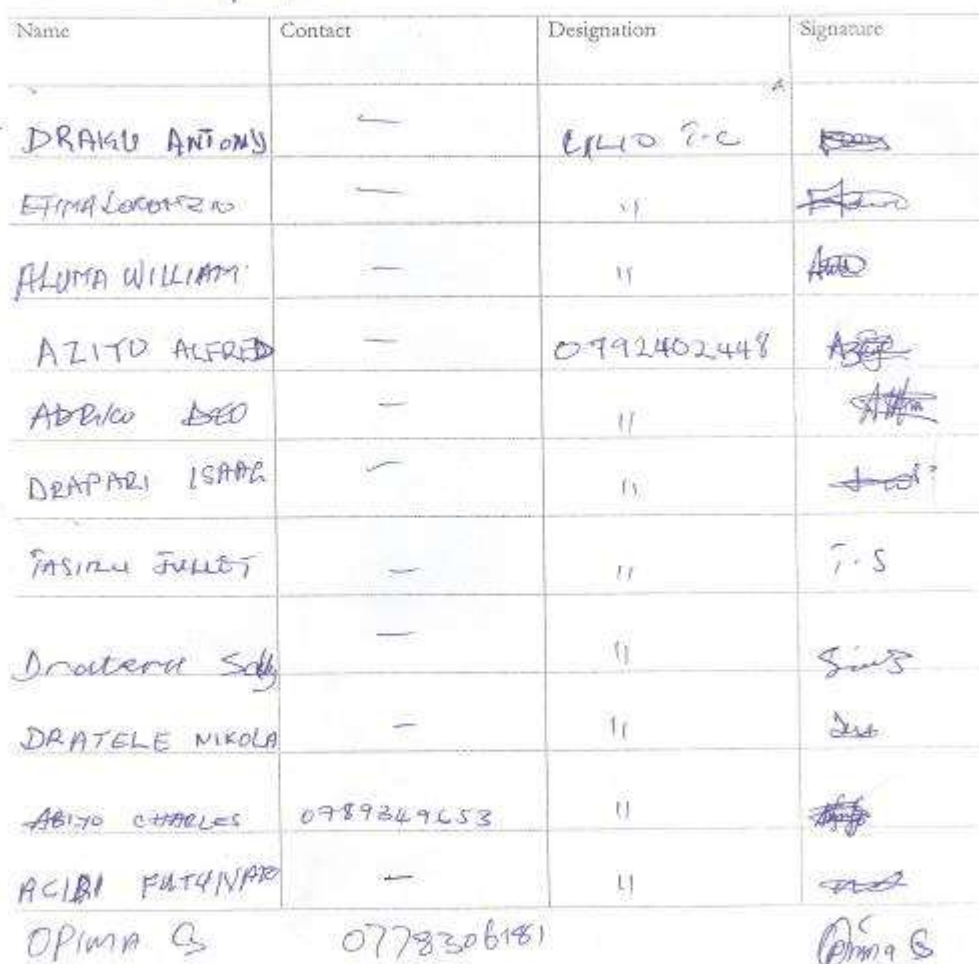 Name Contact Designation Signature
DRAKU ANTONY — T-C
ETIMA — "
ALUMA WILLIAM — "
AZITO ALFRED — 0792402448
ADRICO DEO — "
DRAPARI ISAAC — "
TASIRU JULLET — " T.S
Drateru Sally — "
DRATELE NIKOLA — "
ABIYO CHARLES 0789349653 "
ACIBI FUTUNATO — "
OPIMA G 0778306181 Opima G